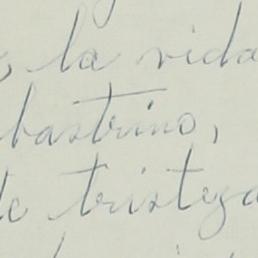 la vida
bastrino,
te tristeza